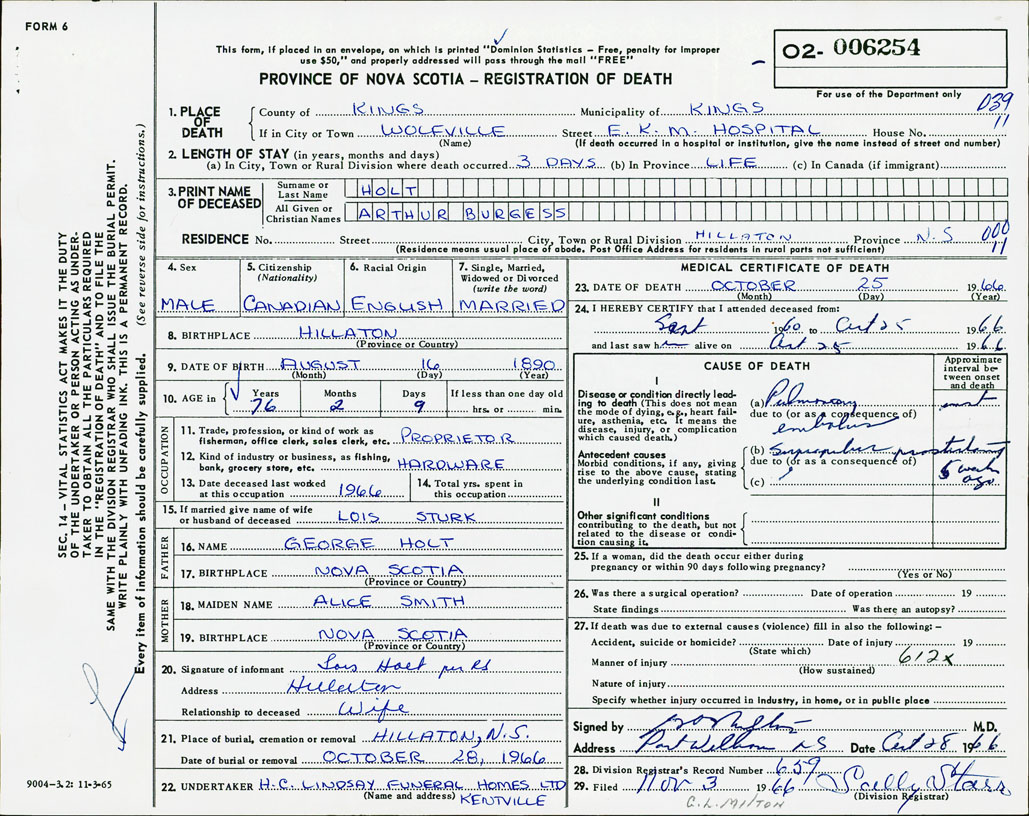 FORM 6
This form, if placed in an envelope, on which is printed "Dominion Statistics – Free, penalty for improper
use $50," and properly addressed will pass through the mail "FREE"
PROVINCE OF NOVA SCOTIA – REGISTRATION OF DEATH
02- 006254
For use of the Department only
039
11
1. PLACE OF DEATH
County of KINGS Municipality of KINGS
If in City or Town WOLFVILLE Street E. K. M. HOSPITAL House No.
(Name) (If death occurred in a hospital or institution, give the name instead of street and number)
2. LENGTH OF STAY (in years, months and days)
(a) In City, Town or Rural Division where death occurred 3 DAYS (b) In Province LIFE (c) In Canada (if immigrant)
3. PRINT NAME OF DECEASED
Surname or Last Name HOLT
All Given or Christian Names ARTHUR BURGESS
RESIDENCE No. Street City, Town or Rural Division HILLATON Province N.S
000
11
(Residence means usual place of abode. Post Office Address for residents in rural parts not sufficient)
SEC. 14 – VITAL STATISTICS ACT MAKES IT THE DUTY
OF THE UNDERTAKER OR PERSON ACTING AS UNDER-
TAKER TO OBTAIN ALL THE PARTICULARS REQUIRED
IN THE "REGISTRATION OF DEATH" AND TO FILE THE
SAME WITH THE DIVISION REGISTRAR WHO SHALL ISSUE THE BURIAL PERMIT.
WRITE PLAINLY WITH UNFADING INK. THIS IS A PERMANENT RECORD.
Every item of information should be carefully supplied. (See reverse side for instructions.)
4. Sex MALE
5. Citizenship (Nationality) CANADIAN
6. Racial Origin ENGLISH
7. Single, Married, Widowed or Divorced (write the word) MARRIED
8. BIRTHPLACE HILLATON
(Province or Country)
9. DATE OF BIRTH AUGUST 16 1890
(Month) (Day) (Year)
10. AGE in Years Months Days If less than one day old
76 2 9 hrs. or min.
OCCUPATION
11. Trade, profession, or kind of work as
fisherman, office clerk, sales clerk, etc. PROPRIETOR
12. Kind of industry or business, as fishing,
bank, grocery store, etc. HARDWARE
13. Date deceased last worked
at this occupation 1966
14. Total yrs. spent in
this occupation
15. If married give name of wife
or husband of deceased LOIS STURK
FATHER
16. NAME GEORGE HOLT
17. BIRTHPLACE NOVA SCOTIA
(Province or Country)
MOTHER
18. MAIDEN NAME ALICE SMITH
19. BIRTHPLACE NOVA SCOTIA
(Province or Country)
20. Signature of informant Lois Holt per
Address Hillaton
Relationship to deceased Wife
21. Place of burial, cremation or removal HILLATON, N.S.
Date of burial or removal OCTOBER 28, 1966
22. UNDERTAKER H.C. LINDSAY FUNERAL HOMES LTD
(Name and address) KENTVILLE
9004-3.2: 11-3-65
MEDICAL CERTIFICATE OF DEATH
23. DATE OF DEATH OCTOBER 25 1966
(Month) (Day) (Year)
24. I HEREBY CERTIFY that I attended deceased from:
Sept 1960 to Oct 25 1966
and last saw him alive on Oct 25 1966
CAUSE OF DEATH
Approximate interval between onset and death
I
Disease or condition directly lead-
ing to death (This does not mean
the mode of dying, e.g., heart fail-
ure, asthenia, etc. It means the
disease, injury, or complication
which caused death.)
(a) Pulmonary
due to (or as a consequence of)
embolus
Antecedent causes
Morbid conditions, if any, giving
rise to the above cause, stating
the underlying condition last.
(b) Suprapubic prostatectomy
due to (or as a consequence of)
5 weeks
ago
(c)
II
Other significant conditions
contributing to the death, but not
related to the disease or condi-
tion causing it.
25. If a woman, did the death occur either during
pregnancy or within 90 days following pregnancy?
(Yes or No)
26. Was there a surgical operation? Date of operation 19
State findings Was there an autopsy?
27. If death was due to external causes (violence) fill in also the following: –
Accident, suicide or homicide? Date of injury 19
(State which) 612x
Manner of injury
(How sustained)
Nature of injury
Specify whether injury occurred in industry, in home, or in public place
Signed by M.D.
Address Port Williams NS Date Oct 28 1966
28. Division Registrar's Record Number 659
29. Filed Nov 3 1966 Sally Starr
(Division Registrar)
G. L. MILTON